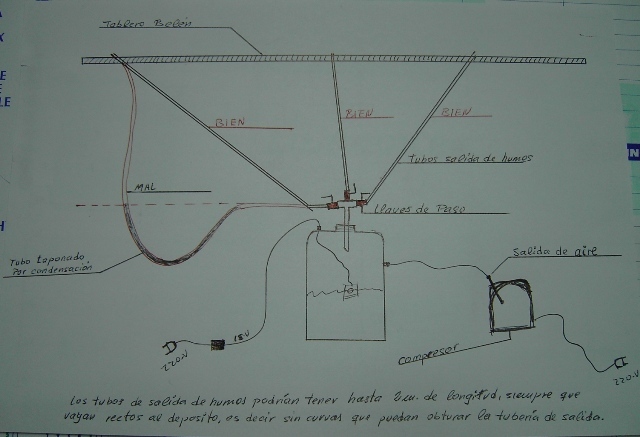 Tablero Belén
BIEN
BIEN
BIEN
Tubos salida de humos
MAL
Llaves de Paso
Tubo taponado
Por condensación
Salida de aire
15V
220V
compresor
220V
Los tubos de salida de humos podrían tener hasta 2m. de longitud, siempre que
vayan rectos al deposito, es decir sin curvas que puedan obturar la tubería de salida.